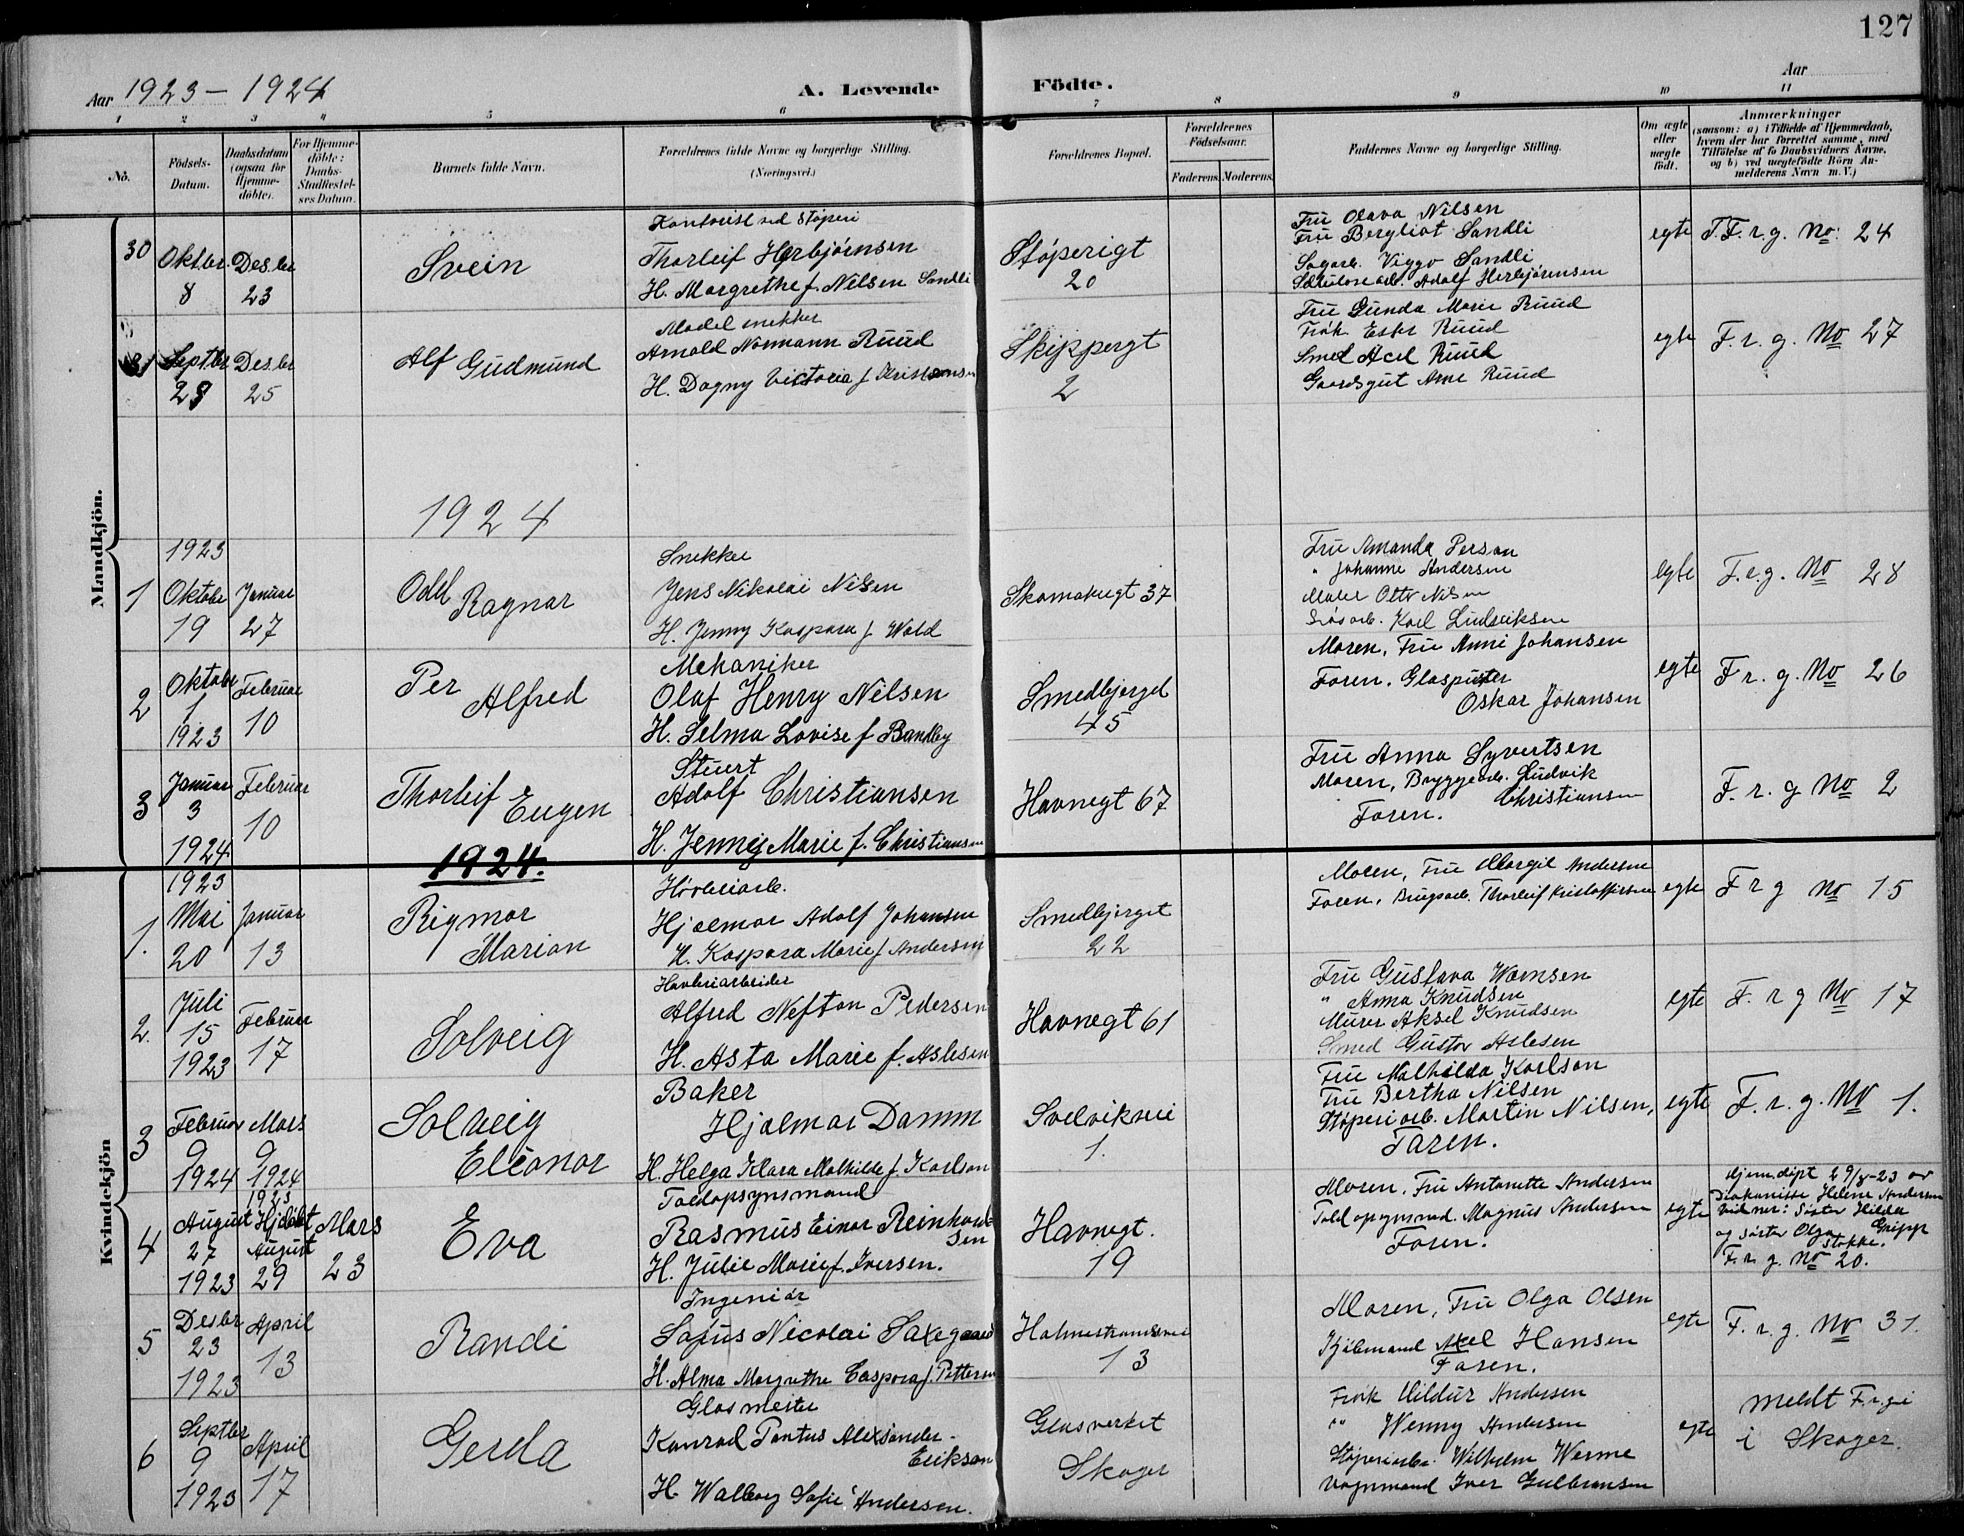 127
Aar 1923 - 1924
A. Levende Födte.
Aar
1 2 3 4 5 6 7 8 9 10 11
No.
Födsels-Datum.
Daabsdatum (ogsaa for Hjemmedöbte).
For Hjemmedöbte: Daabs-Stadfæstelses Datum.
Barnets fulde Navn.
Forældrenes fulde Navne og borgerlige Stilling. (Næringsvei.)
Forældrenes Bopæl.
Forældrenes Födselsaar.
Faderens. Moderens.
Faddernes Navne og borgerlige Stilling.
Om ægte eller uægte födt.
Anmærkninger
(saasom: a) i Tilfælde af Hjemmedaab, hvem der har forrettet samme, med Tilföielse af to Daabsvidners Navne, og b) ved uægtefödte Börn Anmelderens Navn m. V.)
Mandkjön.
30
Oktbr. 8
Des.br 23
Svein
Kontorist ved Støperi
Thorleif Herbjørnsen
H. Margrethe f. Nilsen Sandli
Støperigt 20
Fru Olava Nilsen
Fru Bergliot Sandli
Sagarb. Viggo Sandli
Adolf Herbjørensen
egte
F. r. g. No. 24
31
Septbr
Des.br 25
Alf Gudmund
Model snekker
Arnold Normann Ruud
H. Dagny Victoria f. Kristiansen
Skippergt 2
Fru Gunda Marie Ruud
Frøk. Ester Ruud
Smed Acel Ruud
Gaardsgut Arne Ruud
egte
F. r. g. No 27
1924
1
1923 Oktober 19
Januar 27
Odd Ragnar
Snekker
Jens Nikolai Nilsen
H. Jenny Kaspara f. Wold
Skomakergt 37
Fru Amanda Person
" Johanne Andersen
Maler Otto Nilsen
Karl Ludviksen
egte
F. r. g. No 28
2
Oktober 1 1923
Februar 10
Per Alfred
Mekaniker
Olaf Henry Nilsen
H. Selma Lovise f. Bandby
Smedbjerget 45
Moren, Fru Anni Johansen
Faren. Glaspuster
Oskar Johansen
egte
F r. g. No 26
3
Januar 3 1924
Februar 10
Thorleif Eugen
Stuert
Adolf Christiansen
H. Jenny Marie f. Christiansen
Havnegt 67
Fru Anna Syvertsen
Moren, Bryggearb. Ludvik Christiansen
Faren.
F. r. g No 2
Kvindekjön
1924.
1.
1923 Mai 20
Januar 13
Rigmor Marion
Høvleriarb.
Hjalmar Adolf Johansen
H. Kaspara Marie f Andersen
Smedbjerget 22
Moren, Fru Margit Andersen
Faren, Brugsarb. Thorleif Kristoffersen
egte
F r g No 15
2.
Juli 15 1923
Februar 17
Solveig
Høvleriarbeider
Alfred Nefton Pedersen
H. Asta Marie f. Aslesen
Havnegt 61
Fru Gustava Wamsen
" Anna Knudsen
Murer Aksel Knudsen
Smed Gustov Aslesen
egte
F. r g No 17
3
Februar 9 1924
Mars 9 1924
Solveig Eleonor
Baker
Hjalmar Damm
H. Helga Klara Mathilde f. Karlson
Svelviksvei 1.
Fru Mathilda Karlson
Fru Bertha Nilsen
Støperiarb. Martin Nilsen,
Faren.
egte
F. r. g. No 1.
4
August 27 1923
1923 Hjdøbt August 29
Mars 23
Eva
Toldopsynsmand
Rasmus Einar Reinhardsen
H. Julie Marie f. Iversen.
Havnegt. 19
Moren. Fru Antonette Andersen
Toldopsynsmd. Magnus Andersen
Faren.
egte
Hjem.døpt 29/8-23 av
Diakonisse Helene Andersen
Vidner: Søster Hilda Gripp
og Søster Olga Stokke.
F. r. g. No 20.
5
Desbr 23 1923
April 13
Randi
Ingeniør
Sofus Nicolai Saxegaard
H. Alma Margrethe Caspara f. Pettersen
Holmestrandsvei 13
Moren, Fru Olga Olsen
Kjøbmand Axel Hansen
Faren.
egte
F. r. g. No 31.
6
Septbr 9 1923
April 17
Gerda
Glasmester
Konrad Pontus Alexander Erikson
H. Walborg Sofie Andersen.
Glasverket Skoger
Frøk Hildur Andersen
" Wenny Andersen
Støperiarb. Wilhelm Werme
Vognmand Iver Gulbransen
egte
meldt F.r.g. i
i Skoger.